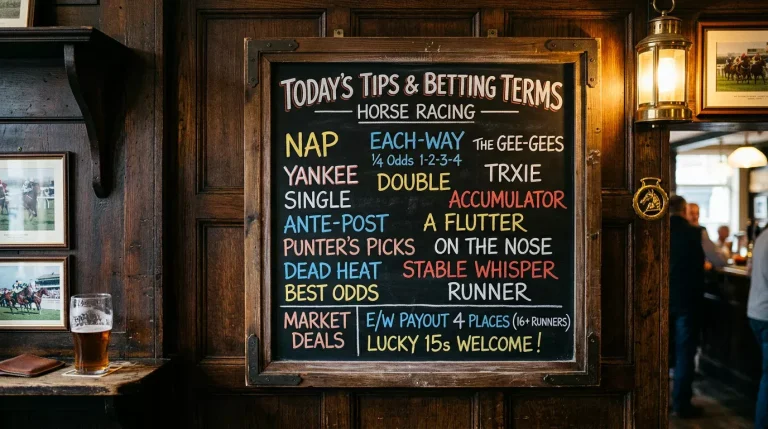 TODAY'S TIPS & BETTING TERMS
HORSE RACING
NAP
EACH-WAY
¼ Odds 1-2-3-4
THE GEE-GEES
YANKEE
DOUBLE
TRXIE
SINGLE
ACCUMULATOR
ANTE-POST
A FLUTTER
PUNTER'S PICKS
ON THE NOSE
DEAD HEAT
STABLE WHISPER
BEST ODDS
RUNNER
MARKET DEALS
E/W PAYOUT 4 PLACES (16+ RUNNERS)
LUCKY 15s WELCOME!